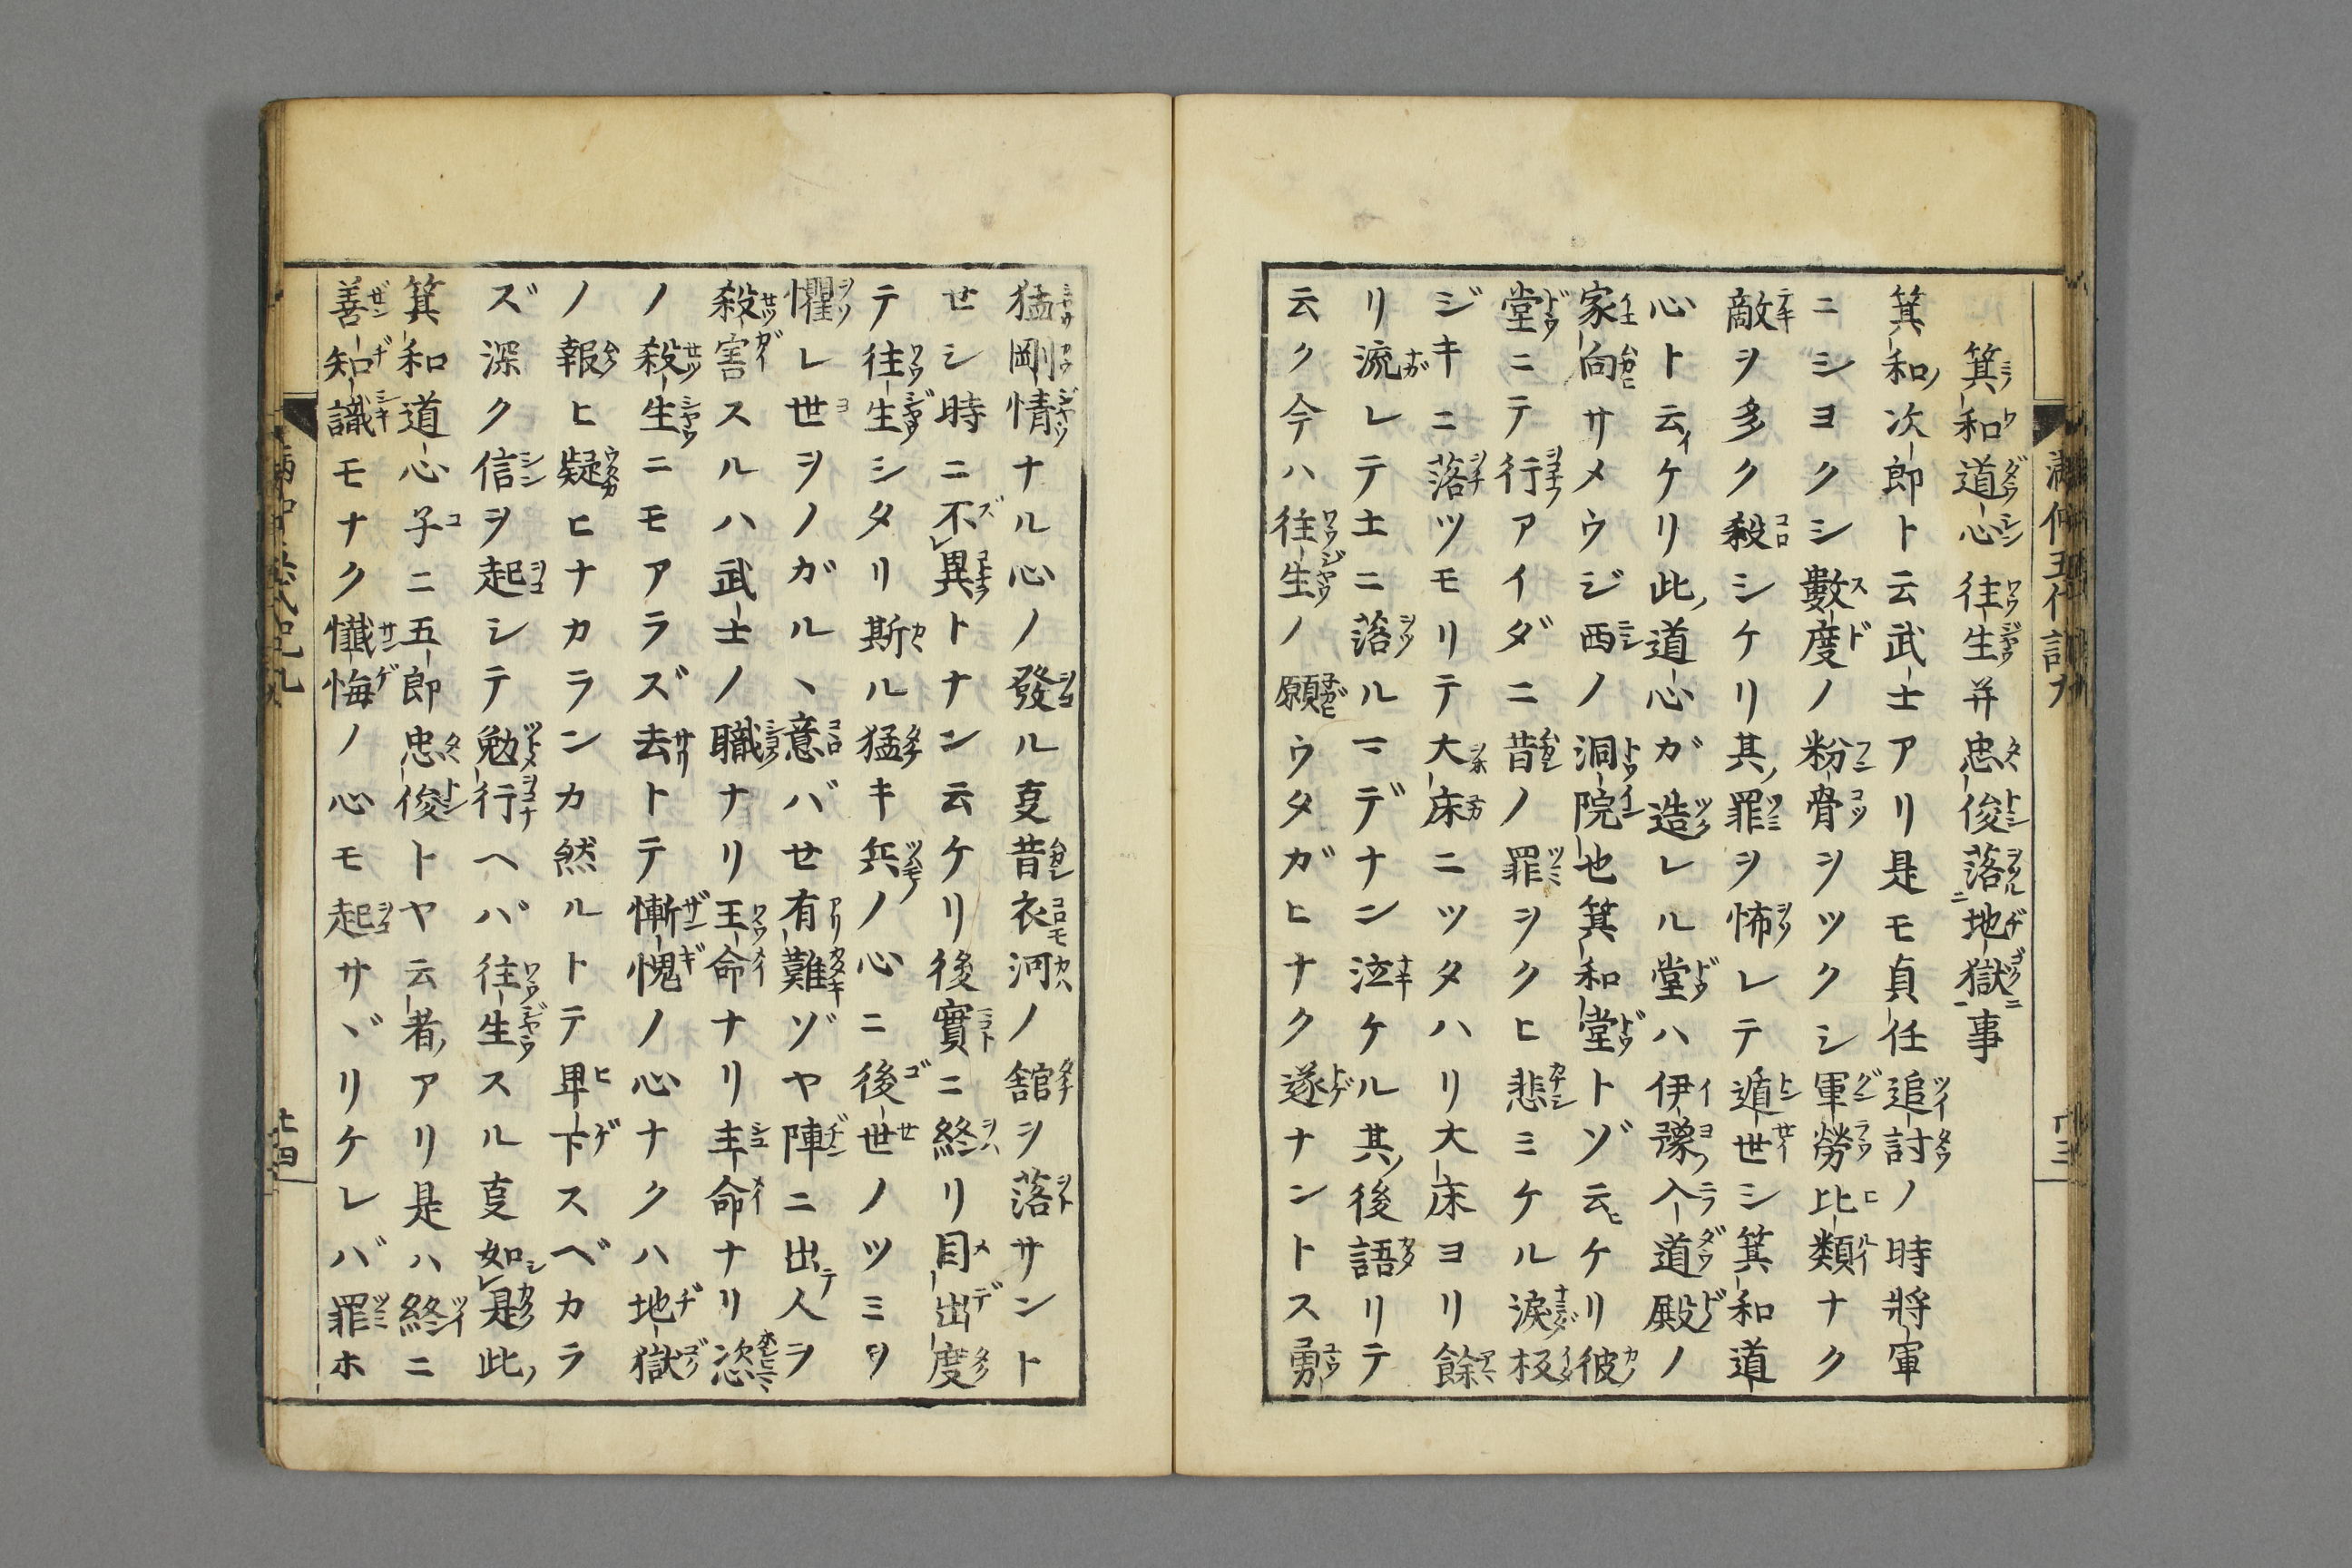 箕和道心往生并忠俊落地獄事
箕和次郎ト云武士アリ是モ貞任追討ノ時將軍
ニシヨクシ數度ノ粉骨ヲツクシ軍勞比類ナク
敵ヲ多ク殺シケリ其罪ヲ怖レテ遁世シ箕和道
心ト云ケリ此道心ガ造レル堂ハ伊豫入道殿ノ
家向サメウジ西ノ洞院也箕和堂トゾ云ケリ彼
堂ニテ行アイダニ昔ノ罪ヲクヒ悲ミケル涙板
ジキニ落ツモリテ大床ニツタハリ大床ヨリ餘
リ流レテ土ニ落ルマデナン泣ケル其後語リテ
云ク今ハ往生ノ願ウタガヒナク遂ナントス勇
猛剛情ナル心ノ發ル叓昔衣河ノ舘ヲ落サント
せシ時ニ不異トナン云ケリ後實ニ終リ目出度
テ往生シタリ斯ル猛キ兵ノ心ニ後世ノツミヲ
懼レ世ヲノガルヽ意バせ有難ゾヤ陣ニ出人ヲ
殺害スルハ武士ノ職ナリ王命ナリ主命ナリ恣
ノ殺生ニモアラズ去トテ慚愧ノ心ナクハ地獄
ノ報ヒ疑ヒナカランカ然ルトテ卑下スベカラ
ズ深ク信ヲ起シテ勉行ヘバ往生スル叓如是此
箕和道心子ニ五郎忠俊トヤ云者アリ是ハ終ニ
善知識モナク懺悔ノ心モ起サヾリケレバ罪ホ